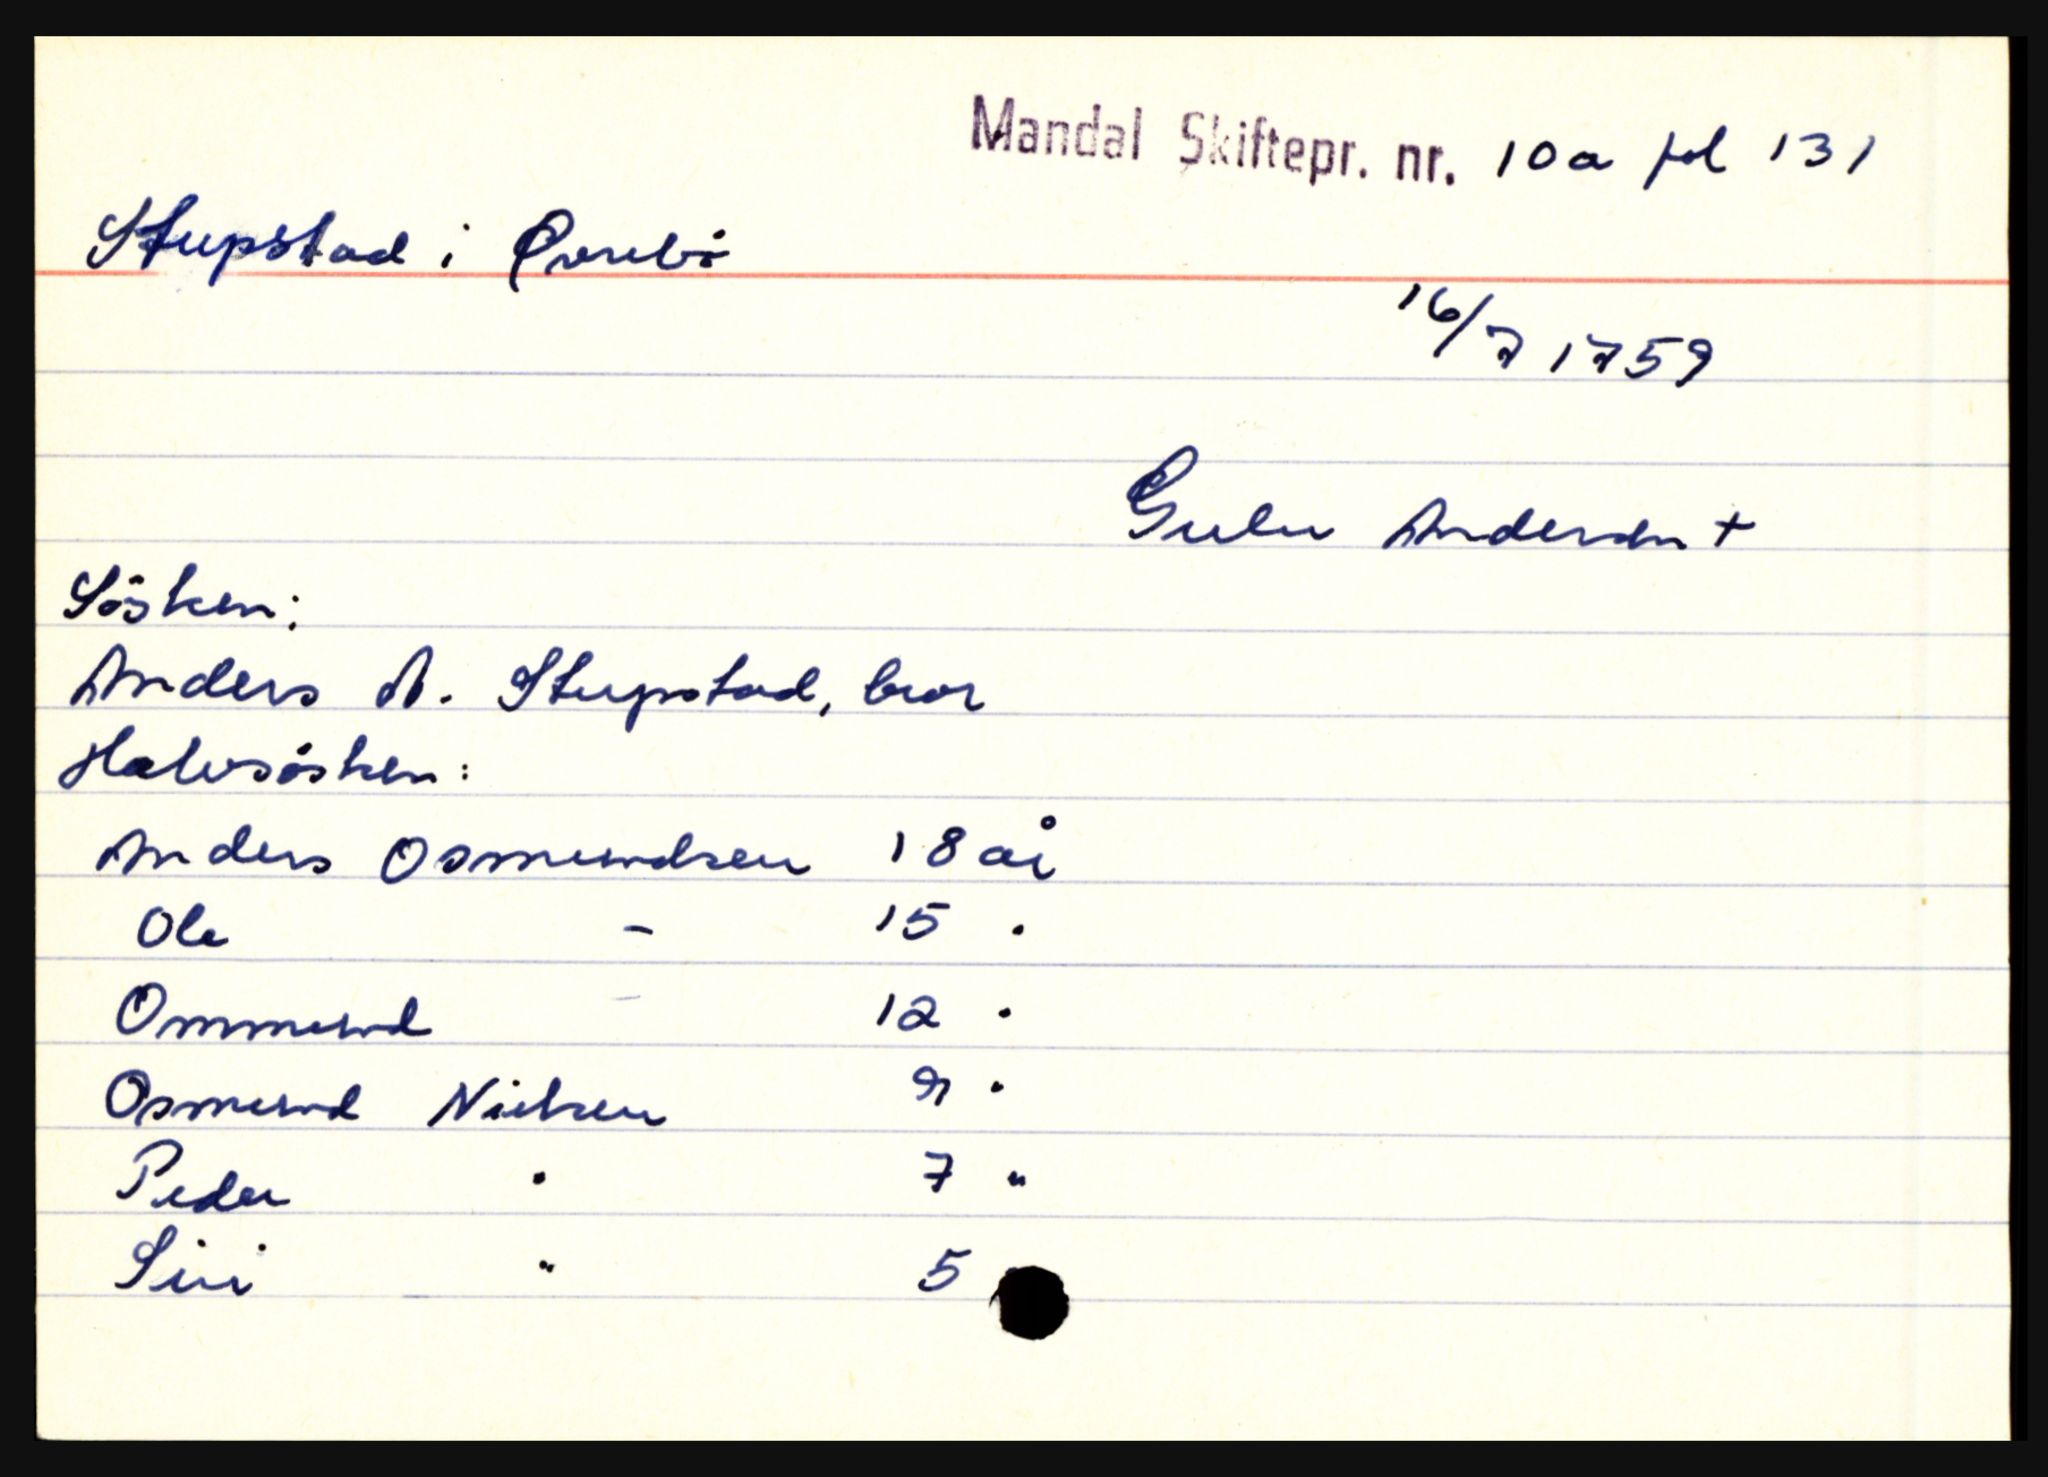 Mandal Skiftepr. nr. 10a fol 131
Stupstad i Øvrebö
16/7 1759
Gulu Andersdn +
Sösken:
Anders A. Stupstad, bror
Halvsösken:
Anders Osmundsen 18 år
Ole - 15 "
Ommund - 12 "
Osmund Nielsen 9 "
Peder " 7 "
Siri " 5